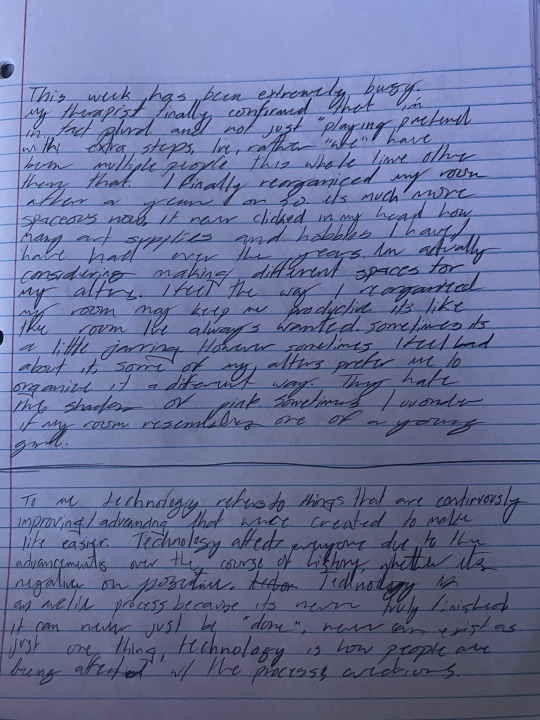 This week has been extremely busy.
my therapist finally confirmed that im
in fact plural and not just "playing pretend
with extra steps, Ive, rather "we" have
been multiple people this whole time other
then that. I finally reorganized my room
after a year on so. its much more
spaceous now, it never clicked in my head how
many art supplies and hobbies I have
have had over the years. Im actually
considering making different spaces for
my alters. I feel the way I reorganized
my room may keep me productive its like
the room Ive always wanted. sometimes its
a little jarring. However sometimes I feel bad
about it, some of my alters prefer me to
organize it a different way. They hate
the shades of pink. Sometimes I wonder
if my room resembles one of a young
girl.
To me technology refers to things that are continuously
improving/advancing that were created to make
life easier. Technology affects everyone due to the
advancements over the course of history, whether its
negative or positive. Technology is
an process because its never truly finished
it can never just be "done", never can exist as
just one thing, technology is how people are
being affected w/ the process,